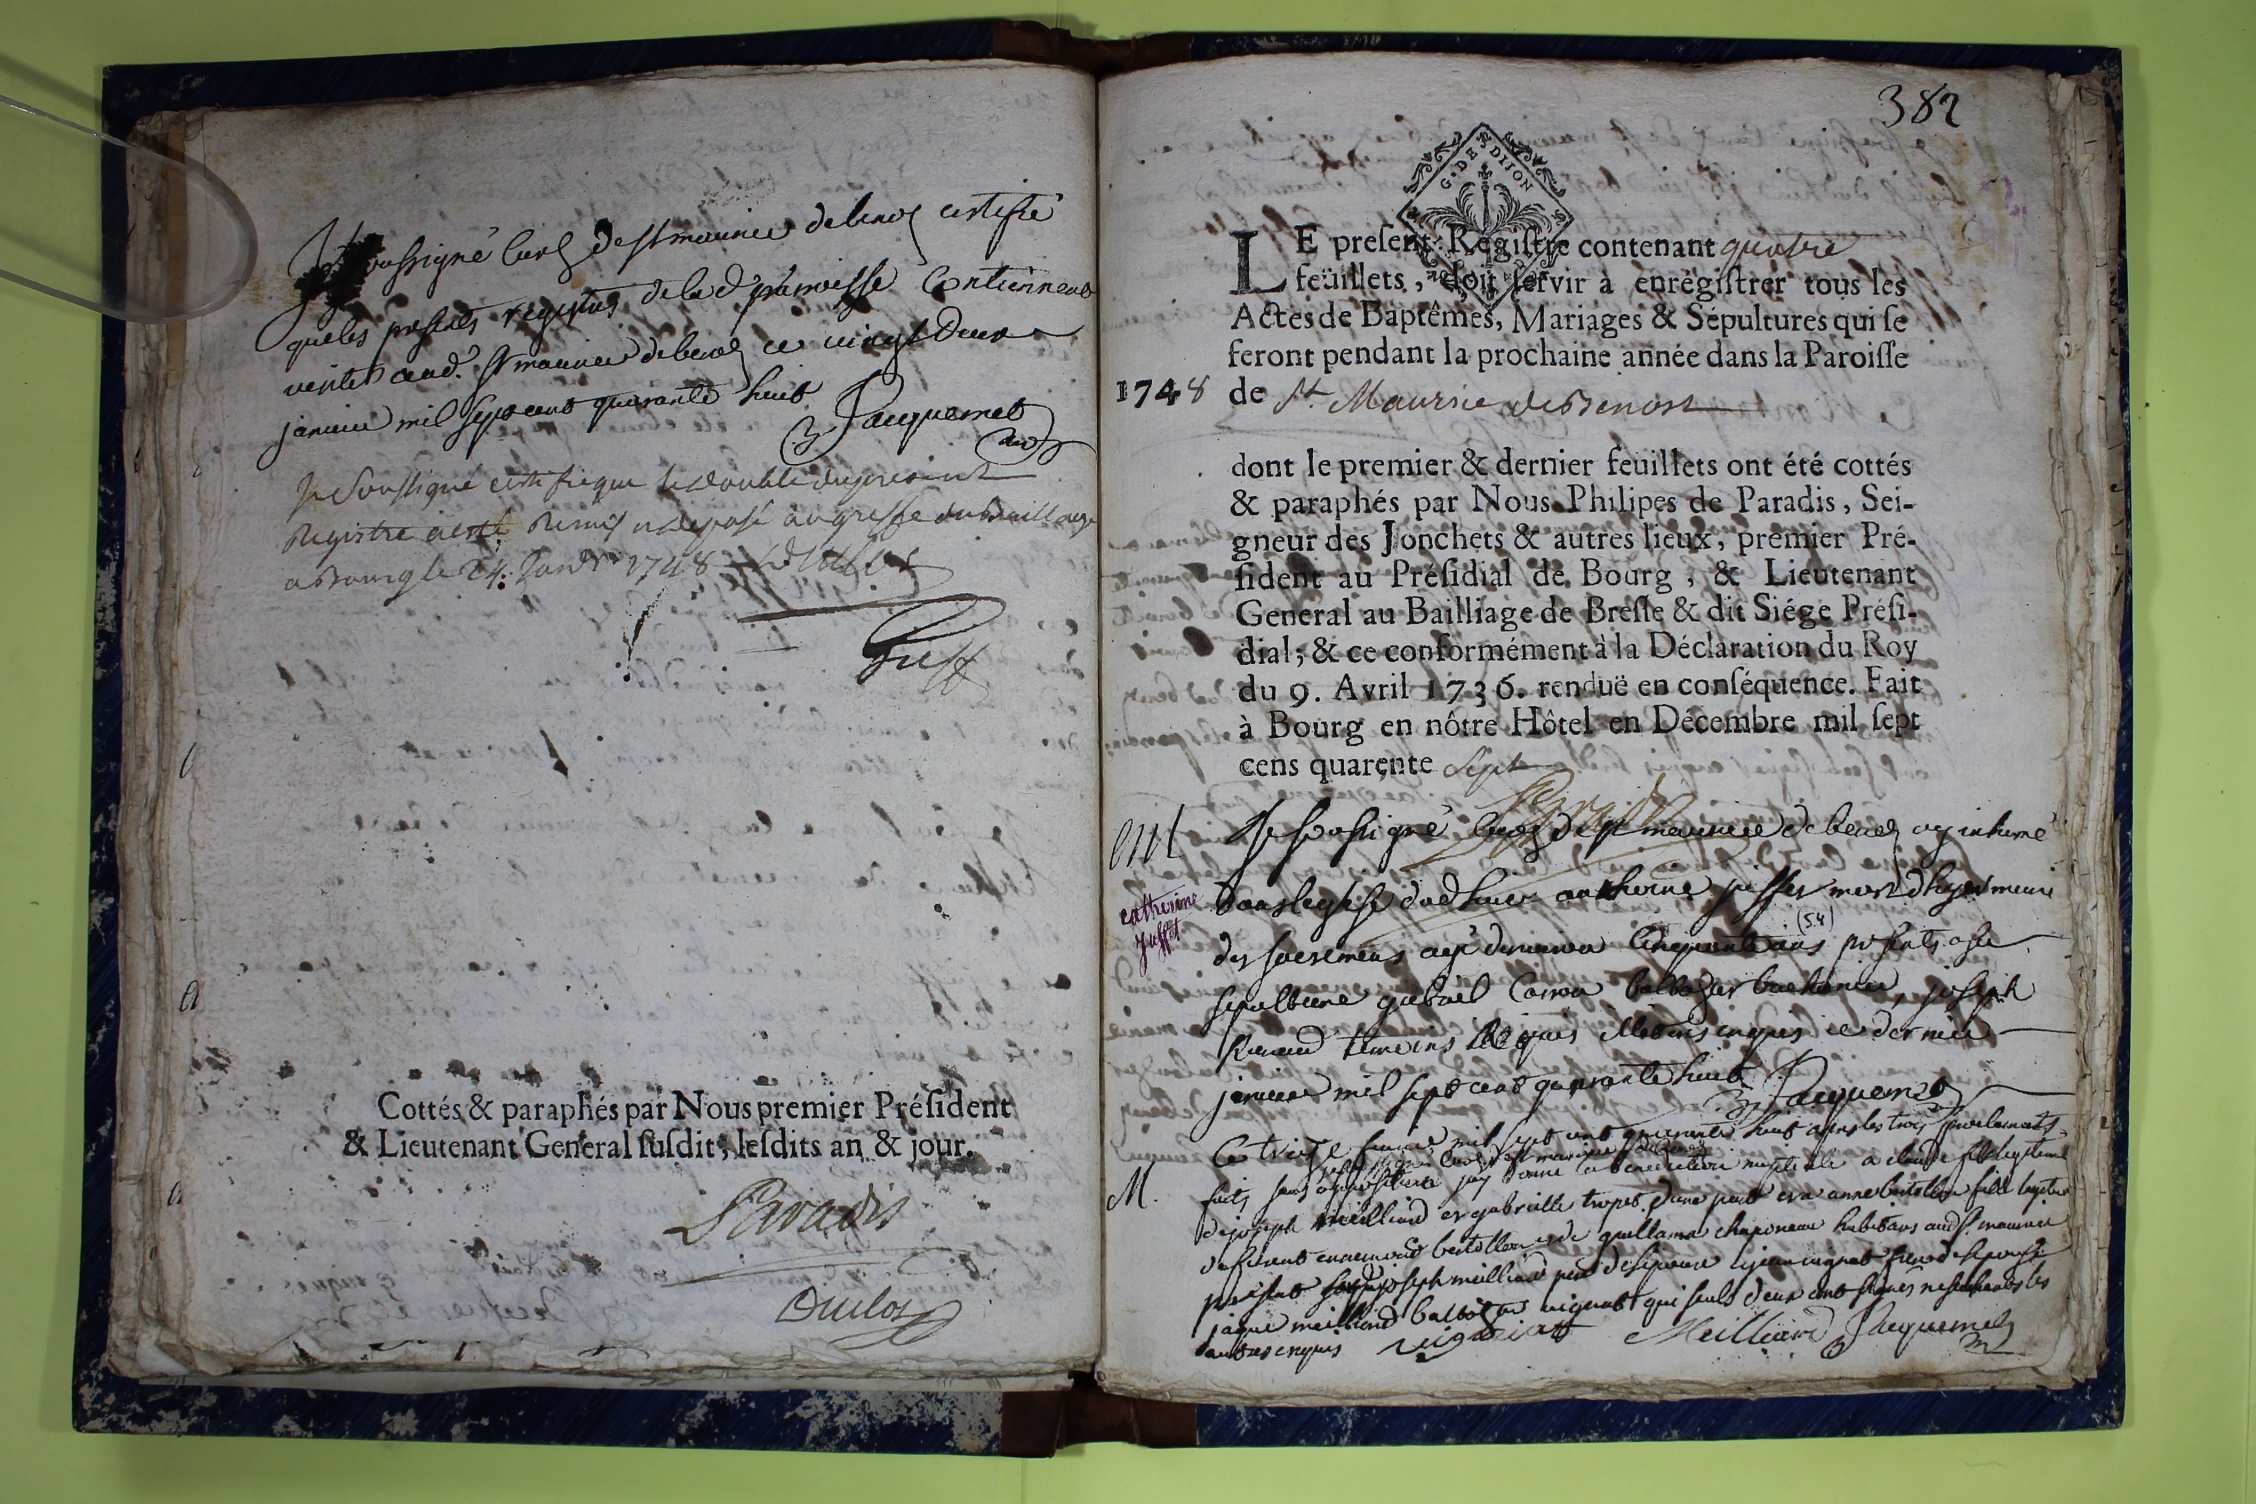 Je soussigné Curé de st maurice de benoz certifié
que les presents registres de lad. parroisse Contiennent
verité aud. st maurice de benoz ce vingt deux
janvier mil sept cent quarante huit
Jacquemet
curé
Je Soussigné certifie que le double du present
Registre a esté Remis et deposé au greffe du Bailliage
a Bourg le 24. Janvr 1748
Greff
Cottés & paraphés par Nous premier Préſident
& Lieutenant General ſuſdit, leſdits an & jour.
Paradis
Duclos
382
G. DE DIJON
LE preſent Regiſtre contenant quatre
feüillets, doit ſervir à enrégiſtrer tous les
Actes de Baptêmes, Mariages & Sépultures qui ſe
feront pendant la prochaine année dans la Paroiſſe
1748 de St. Maurice de Benost
dont le premier & dernier feüillets ont été cottés
& paraphés par Nous Philipes de Paradis, Sei-
gneur des Jonchets & autres lieux, premier Pré-
ſident au Préſidial de Bourg, & Lieutenant
General au Bailliage de Breſſe & dit Siége Préſi-
dial; & ce conformément à la Déclaration du Roy
du 9. Avril 1736. renduë en conſéquence. Fait
à Bourg en nôtre Hôtel en Décembre mil ſept
cens quarente Sept
Paradis
Je soussigné Curé de st maurice de benoz ay inhumé
catherine
Juffet
dans leglise dud lieu catherine juffet morte hyer munie
(54)
des sacremens agée denviron Cinquante ans presents a sa
sepulture gabriel Corron baltazar berthonier, joseph
Renaud temoins Requis illiterés enquis ce dernier
janvier mil sept cent quarante huit Jacquemet
M.
Ce treize fevrier mil sept cent quarante huit apres les trois proclamats
faits sans opposition jay donné la benediction nuptiale a claude fils legitime
de joseph meilliard et gabrielle tropet d'une part et a anne bertillon fille legitime
de guillama chaponeau habitans aud st maurice
present joseph meilliard pere de sepoux
jaque meilliard baltazar vignat qui seuls deux ont signés ne sachants les
autres enquis vignat Meilliard Jacquemet